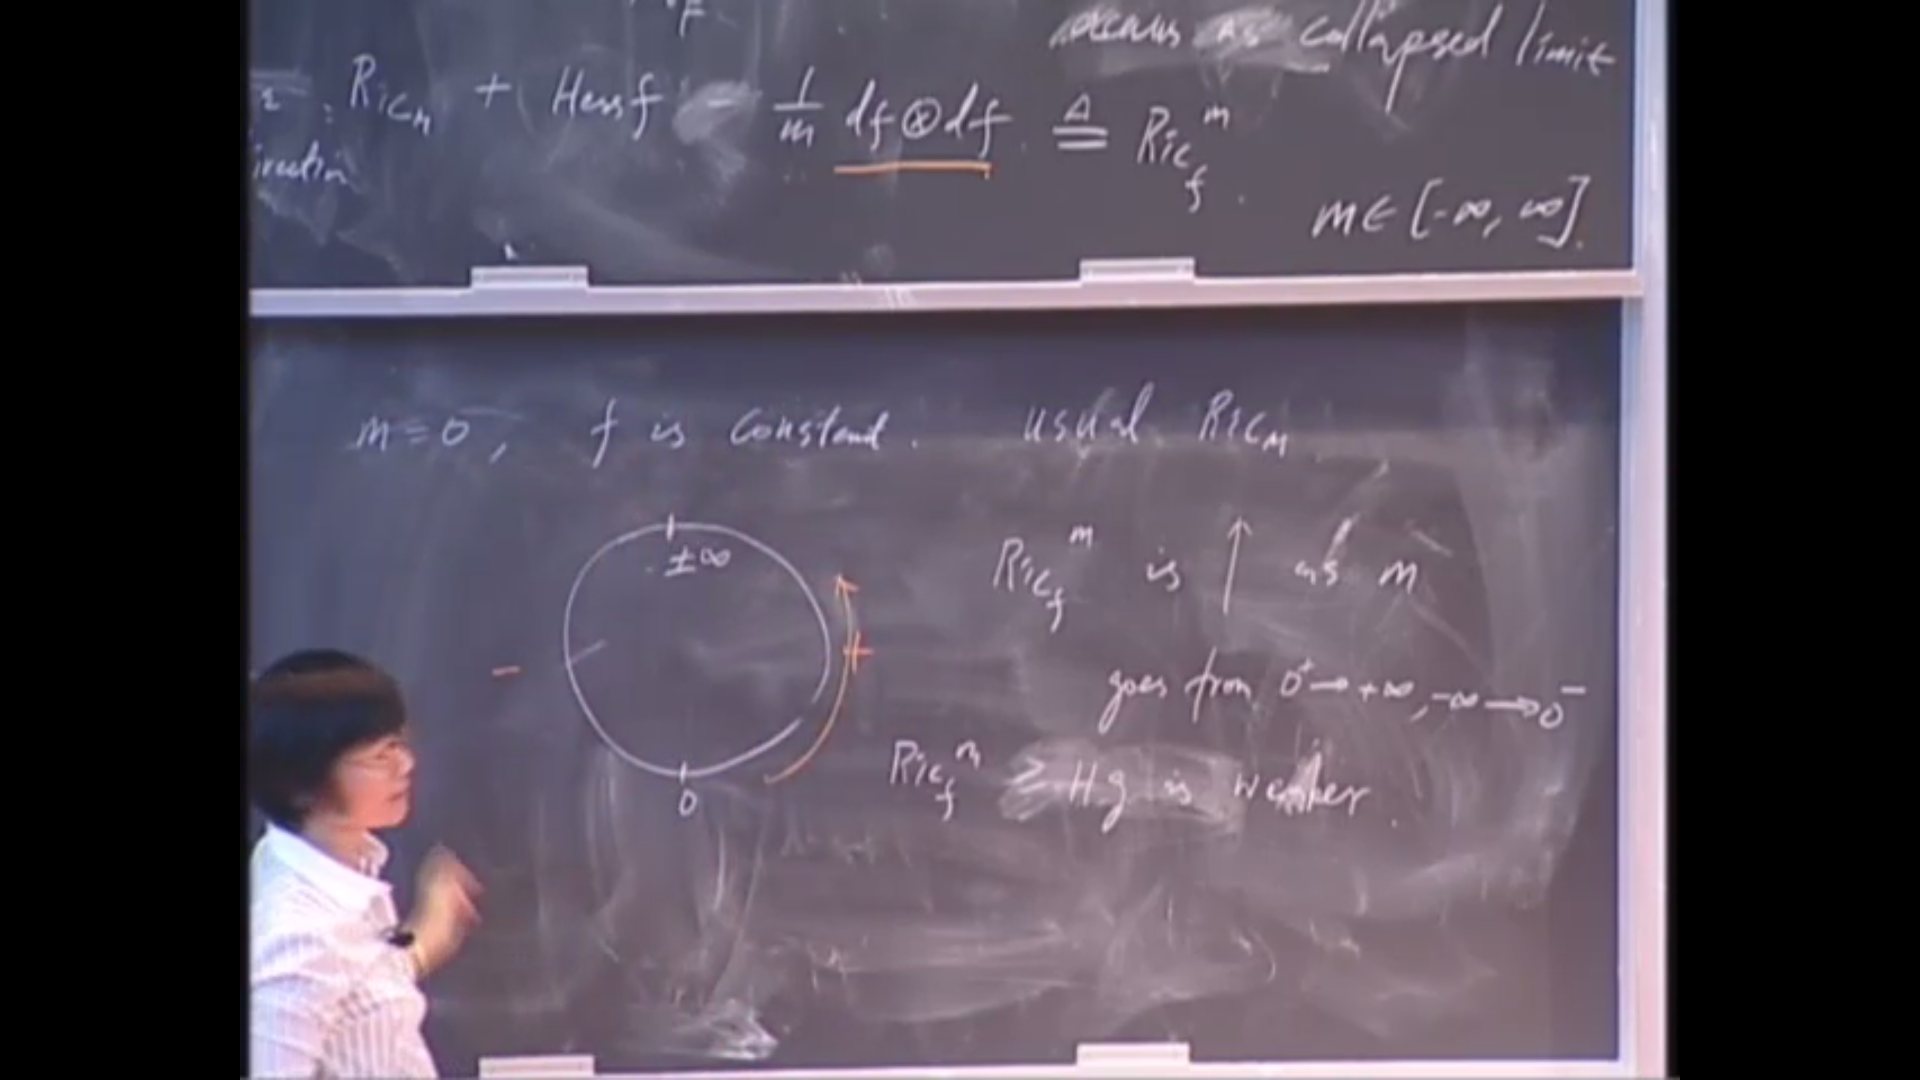 F
occurs as collapsed limit
Ric_M + Hess f - 1/m df⊗df ≜ Ric_f^m.
m ∈ [-∞, ∞].
m = 0, f is constant. usual Ric_M
±∞
- +
0
Ric_f^m is ↑ as m
goes from 0⁺ → +∞, -∞ → 0⁻
Ric_f^m ≥ Hg is weaker.